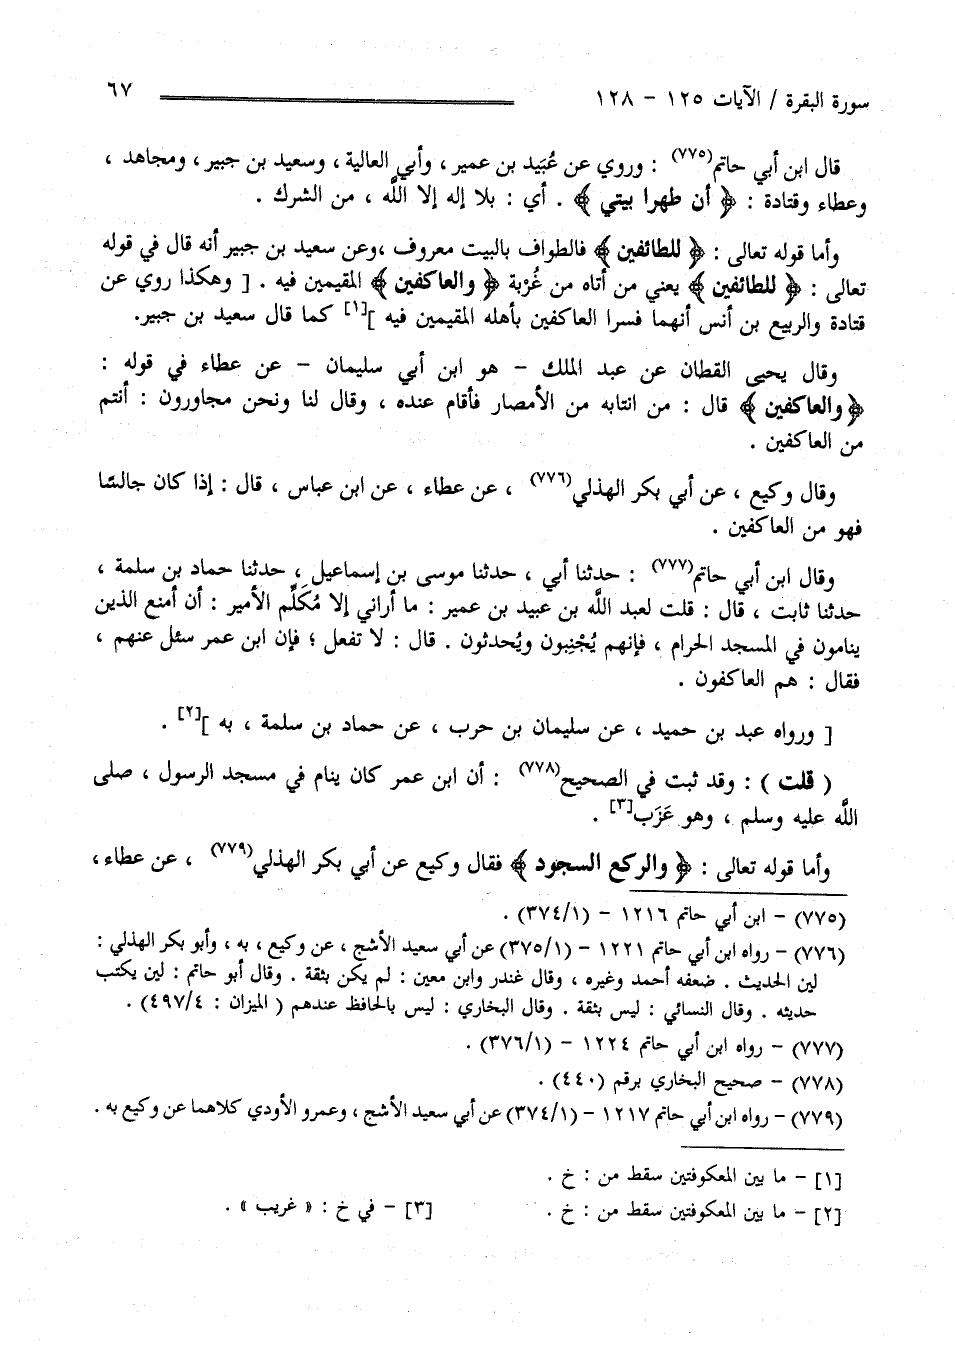 سورة البقرة / الآيات ١٢٥ - ١٢٨ ٦٧
قال ابن أبي حاتم(٧٧٥) : وروي عن عُبَيد بن عمير ، وأبي العالية ، وسعيد بن جبير ، ومجاهد ،
وعطاء وقتادة : ﴿ أن طهرا بيتي ﴾ . أي : بلا إله إلا اللَّه ، من الشرك .
وأما قوله تعالى : ﴿ للطائفين ﴾ فالطواف بالبيت معروف ،وعن سعيد بن جبير أنه قال في قوله
تعالى : ﴿ للطائفين ﴾ يعني من أتاه من غُرْبة ﴿ والعاكفين ﴾ المقيمين فيه . [ وهكذا روي عن
قتادة والربيع بن أنس أنهما فسرا العاكفين بأهله المقيمين فيه ][١] كما قال سعيد بن جبير.
وقال يحيى القطان عن عبد الملك - هو ابن أبي سليمان - عن عطاء في قوله :
﴿ والعاكفين ﴾ قال : من انتابه من الأمصار فأقام عنده ، وقال لنا ونحن مجاورون : أنتم
من العاكفين .
وقال وكيع ، عن أبي بكر الهذلي(٧٧٦) ، عن عطاء ، عن ابن عباس ، قال : إذا كان جالسًا
فهو من العاكفين .
وقال ابن أبي حاتم(٧٧٧) : حدثنا أبي ، حدثنا موسى بن إسماعيل ، حدثنا حماد بن سلمة ،
حدثنا ثابت ، قال : قلت لعبد اللَّه بن عبيد بن عمير : ما أراني إلا مُكَلِّم الأمير : أن أمنع الذين
ينامون في المسجد الحرام ، فإنهم يُجْنِبون ويُحدثون . قال : لا تفعل ؛ فإن ابن عمر سئل عنهم ،
فقال : هم العاكفون .
[ ورواه عبد بن حميد ، عن سليمان بن حرب ، عن حماد بن سلمة ، به ][٢] .
( قلت ) : وقد ثبت في الصحيح(٧٧٨) : أن ابن عمر كان ينام في مسجد الرسول ، صلى
اللَّه عليه وسلم ، وهو عَزَب[٣] .
وأما قوله تعالى : ﴿ والركع السجود ﴾ فقال وكيع عن أبي بكر الهذلي(٧٧٩) ، عن عطاء،
(٧٧٥) - ابن أبي حاتم ١٢١٦ - (٣٧٤/١) .
(٧٧٦) - رواه ابن أبي حاتم ١٢٢١ - (٣٧٥/١) عن أبي سعيد الأشج ، عن وكيع ، به ، وأبو بكر الهذلي :
لين الحديث . ضعفه أحمد وغيره ، وقال غندر وابن معين : لم يكن بثقة . وقال أبو حاتم : لين يكتب
حديثه . وقال النسائي : ليس بثقة . وقال البخاري : ليس بالحافظ عندهم ( الميزان : ٤٩٧/٤) .
(٧٧٧) - رواه ابن أبي حاتم ١٢٢٤ - (٣٧٦/١) .
(٧٧٨) - صحيح البخاري برقم (٤٤٠) .
(٧٧٩) - رواه ابن أبي حاتم ١٢١٧ - (٣٧٤/١) عن أبي سعيد الأشج ، وعمرو الأودي كلاهما عن وكيع به .
[١] - ما بين المعكوفتين سقط من : خ .
[٢] - ما بين المعكوفتين سقط من : خ . [٣] - في خ : « غريب » .